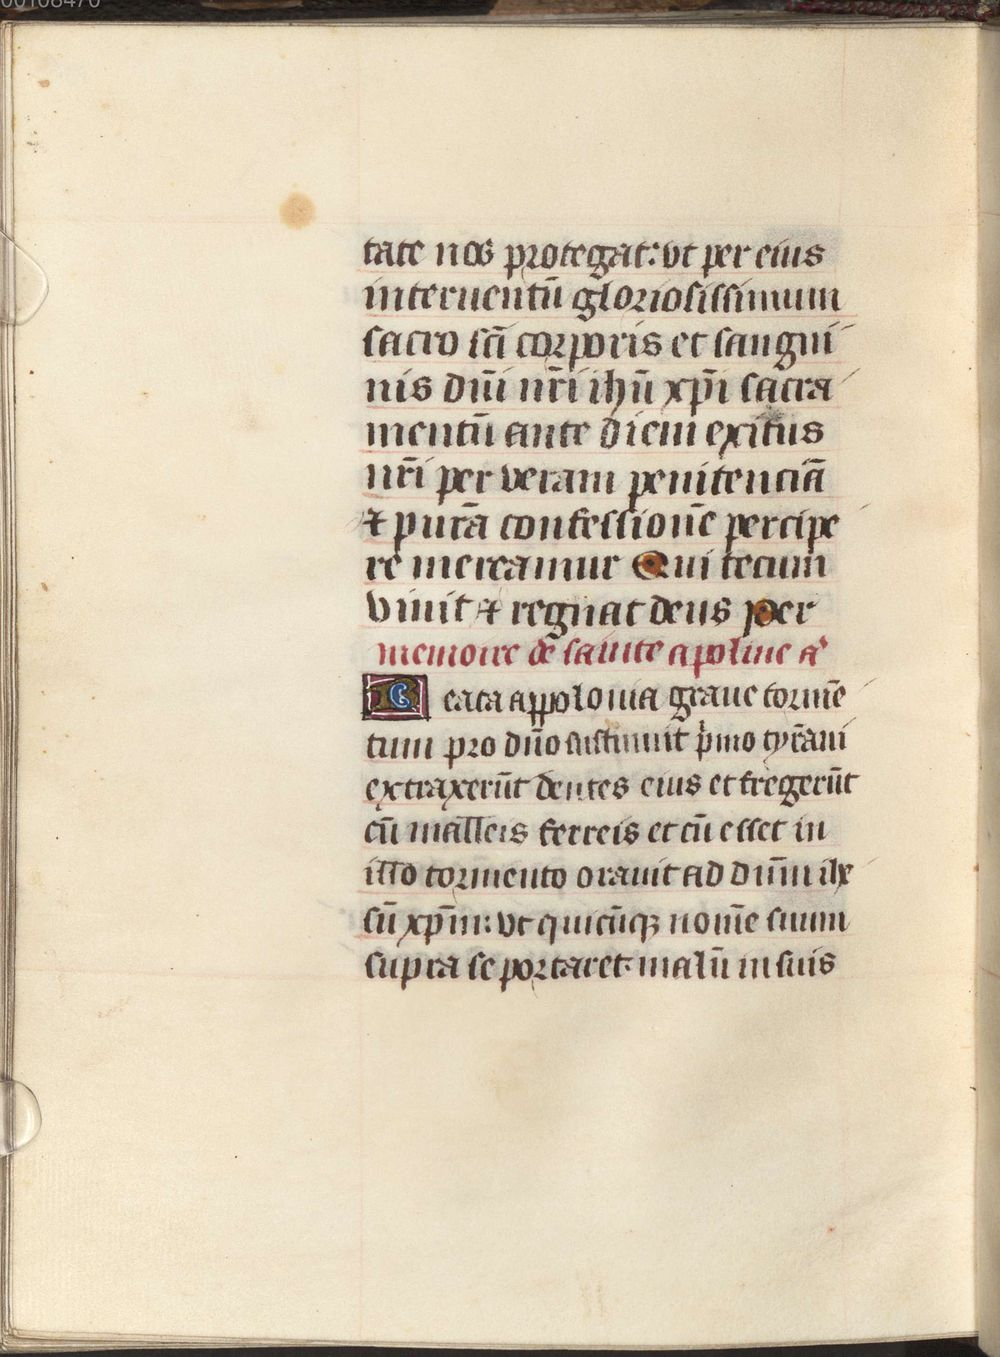 00108470
tate nos protegat: vt per eius
interuentū gloriosissimum
sacro sc̄i corporis et sangui
nis dn̄i nr̄i ihū xp̄i sacra
mentū ante diem exitus
nr̄i per veram penitenciā
⁊ purā confessionē percipe
re mereamur Qui tecum
viuit ⁊ regnat deus per
memoire de sainte apoline aͣ
Beata appolonia graue tormē
tum pro dn̄o sustinuit pͥmo tyrāni
extraxerūt dentes eius et fregerūt
cū malleis ferreis et cū esset in
illo tormento orauit ad dn̄m ihe
sū xp̄m: vt quicūqꝫ nomē suum
supra se portaret· malū in suis